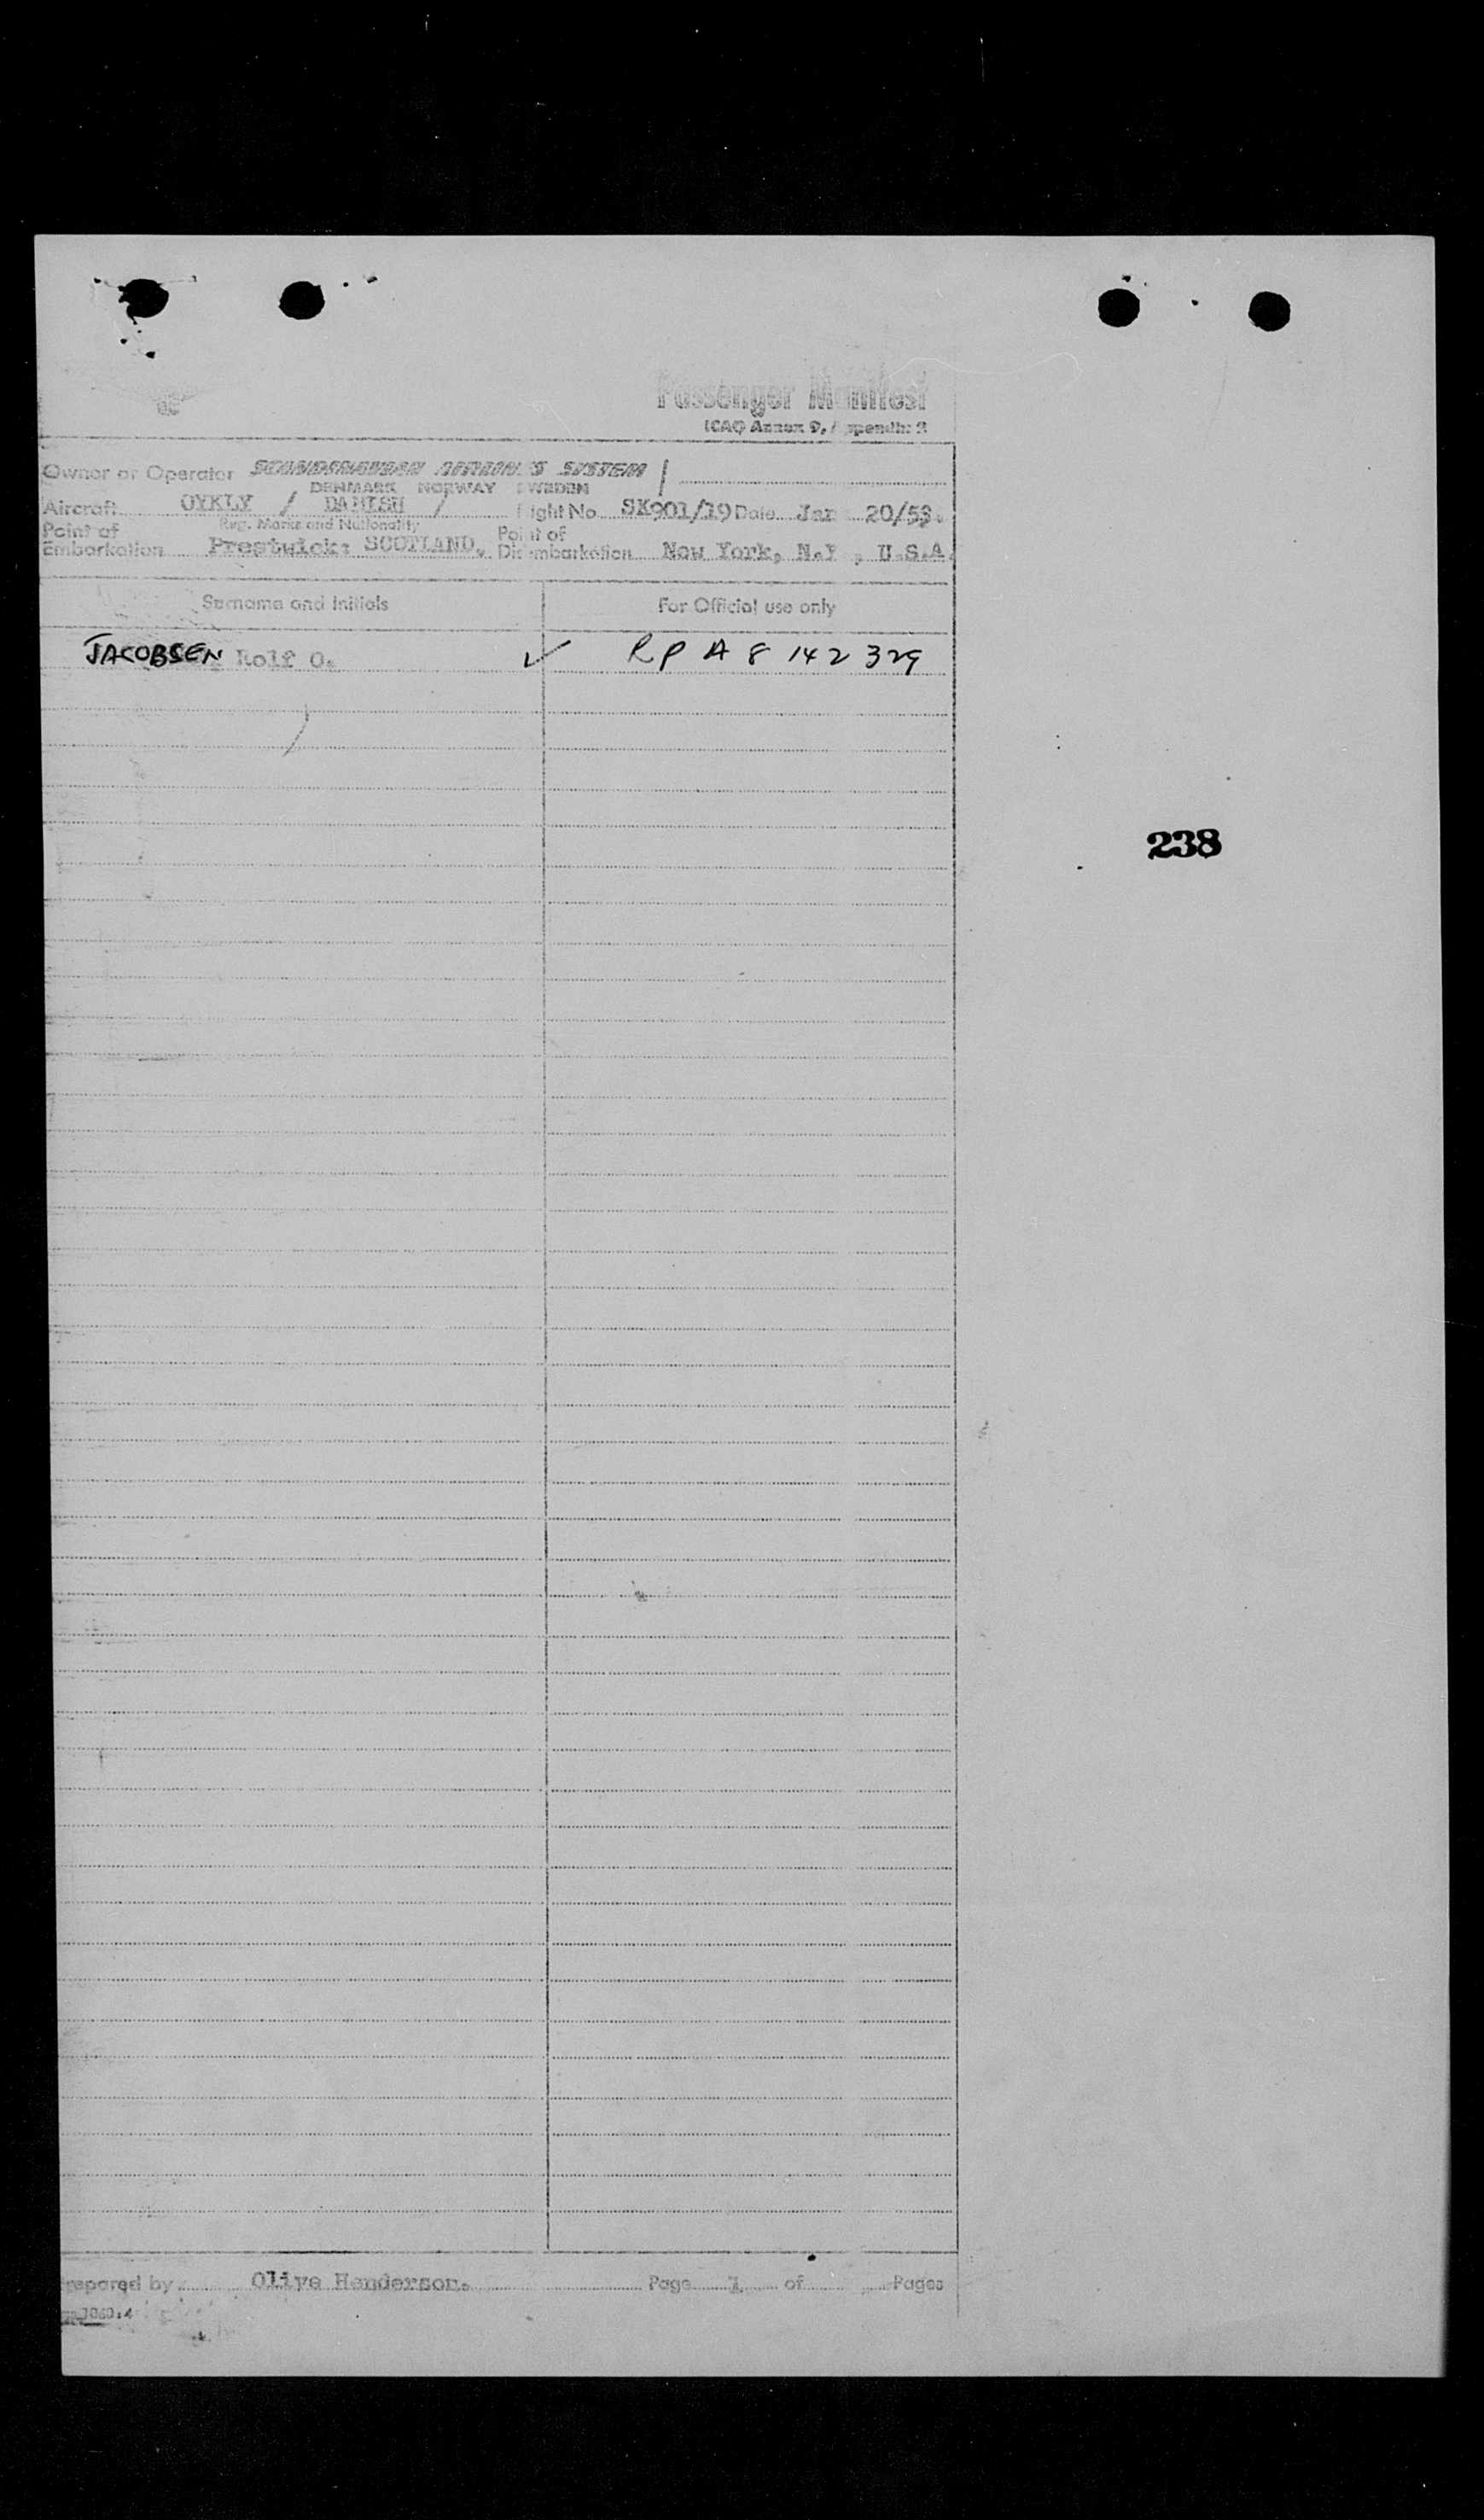 Passenger Manifest
ICAO Annex 9, Appendix 3
Owner or Operator SCANDINAVIAN AIRLINES SYSTEM
DENMARK NORWAY SWEDEN
Aircraft OYKLY / DANISH / Flight No SK901/19 Date Jan 20/53.
Reg. Marks and Nationality
Point of Embarkation Prestwick: SCOTLAND. Point of Disembarkation New York, N.Y., U.S.A.
Surname and Initials For Official use only
JACOBSEN Rolf O. ✓ RP A 8 142 329
238
Prepared by Olive Henderson. Page 1 of Pages